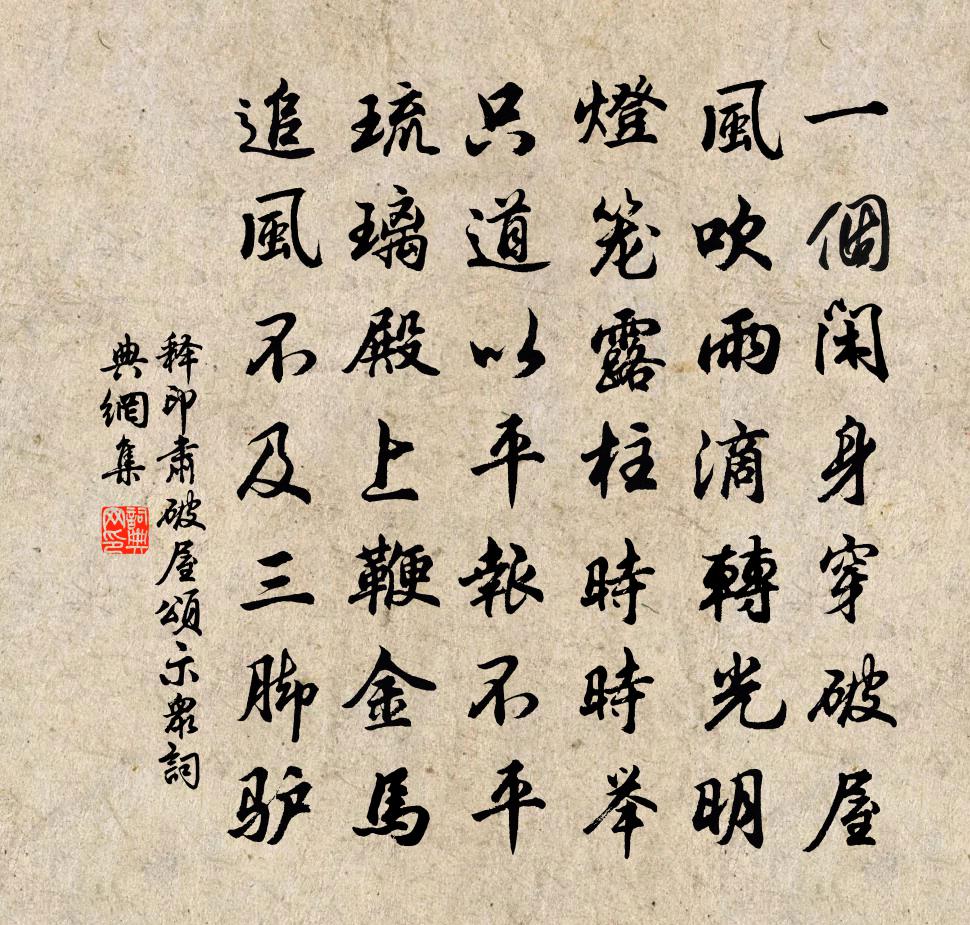 一個閑身穿破屋
風吹雨滴轉光明
燈笼露柱時時举
只道以平報不平
琉璃殿上鞭金馬
追風不及三脚驴
释印肃破屋頌示眾詞
典網集
詞典
网印